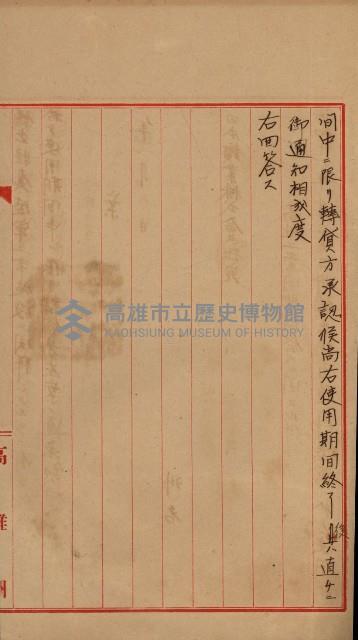 間中ニ限リ轉貸方承認候尚右使用期間終了ノ後ハ直チニ
御通知相成度
右回答ス
高雄州
高雄市立歷史博物館
KAOHSIUNG MUSEUM OF HISTORY